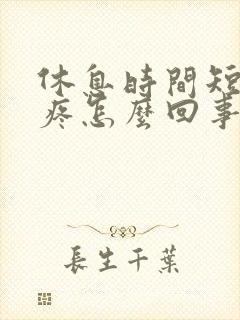 休息時間短
疼怎麼回事
長生千葉